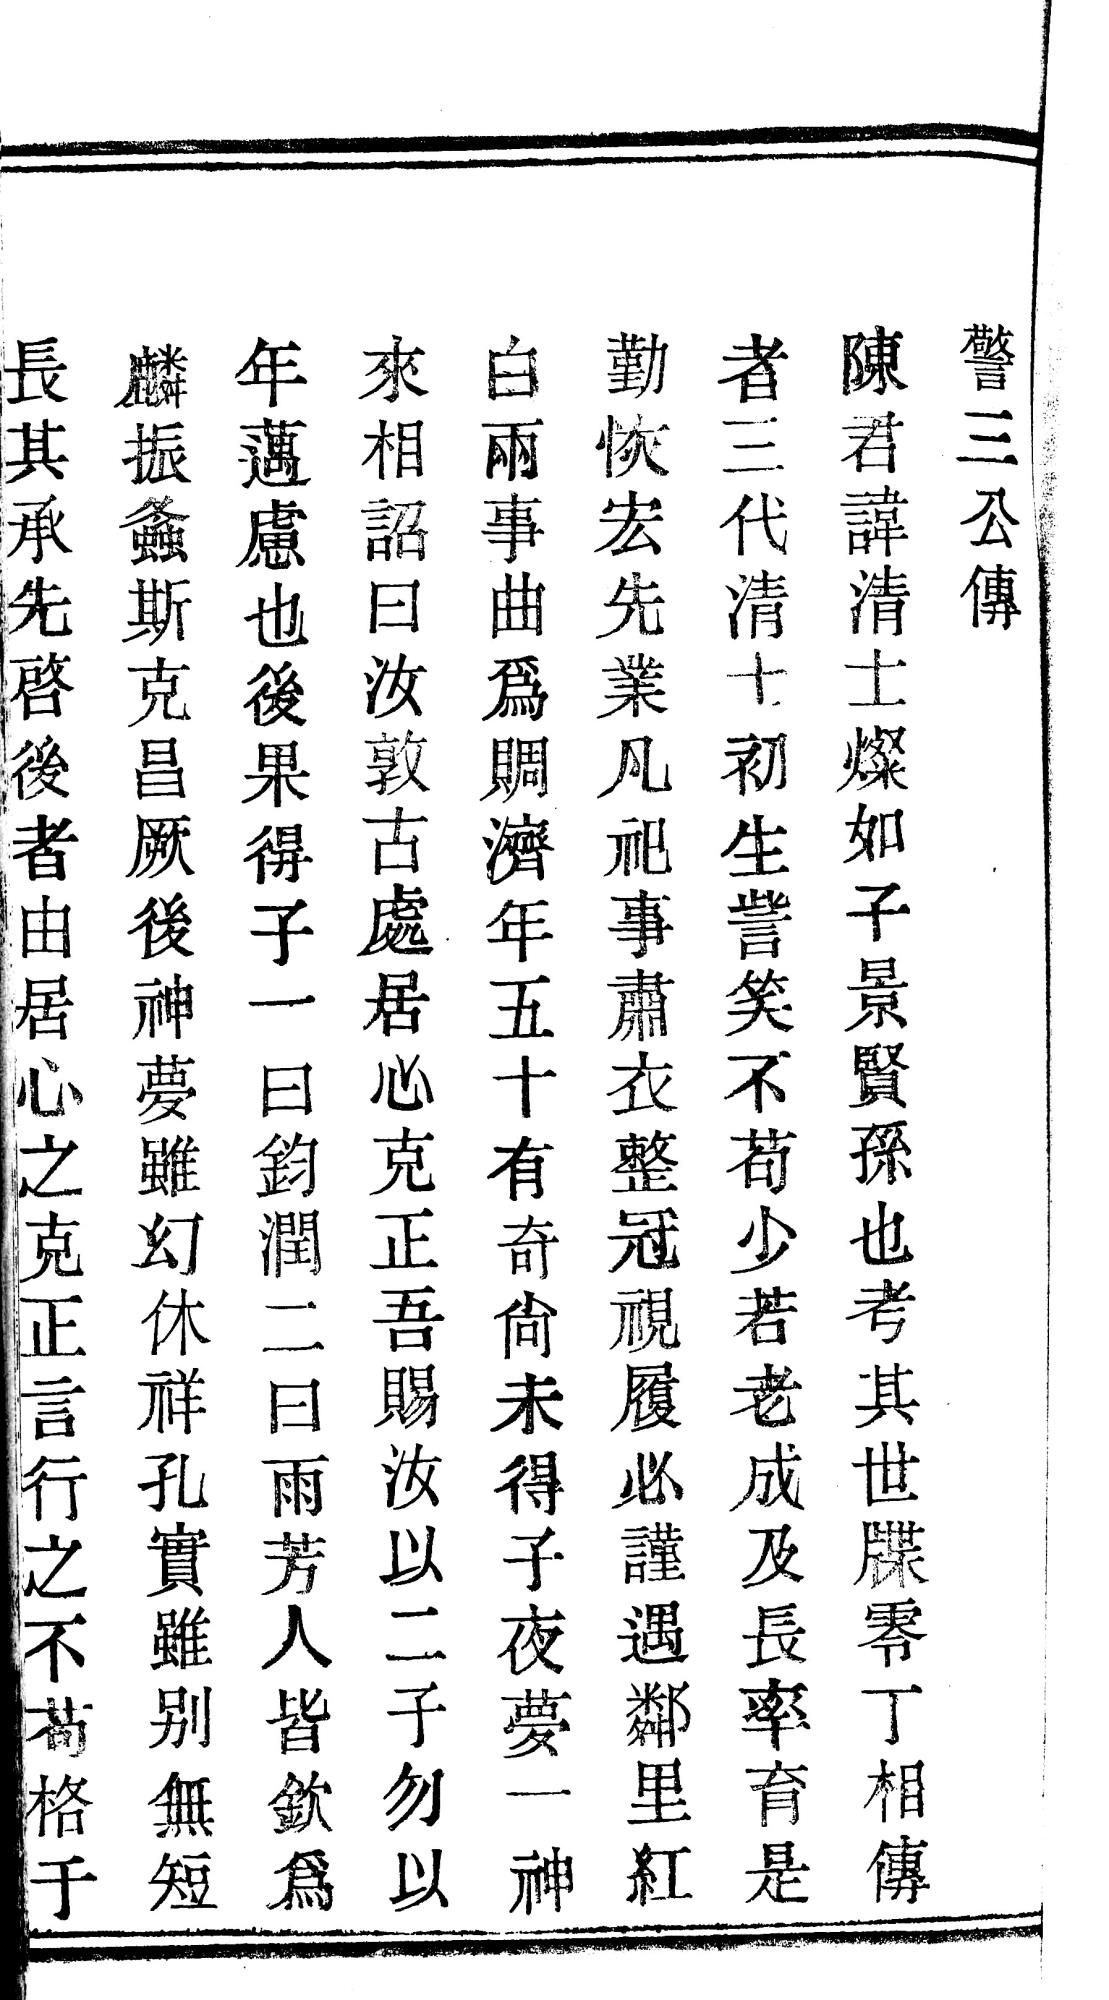 警三公傳
陳君諱清士燦如子景賢孫也考其世牒零丁相傳
者三代清士初生訾笑不苟少若老成及長率育是
勤恢宏先業凡祀事肅衣整冠視履必謹遇鄰里紅
白兩事曲爲賙濟年五十有奇尙未得子夜夢一神
來相詔曰汝敦古處居心克正吾賜汝以二子勿以
年邁慮也後果得子一曰鈞潤二曰雨芳人皆欽爲
麟振螽斯克昌厥後神夢雖幻休祥孔實雖别無短
長其承先啓後者由居心之克正言行之不苟格于